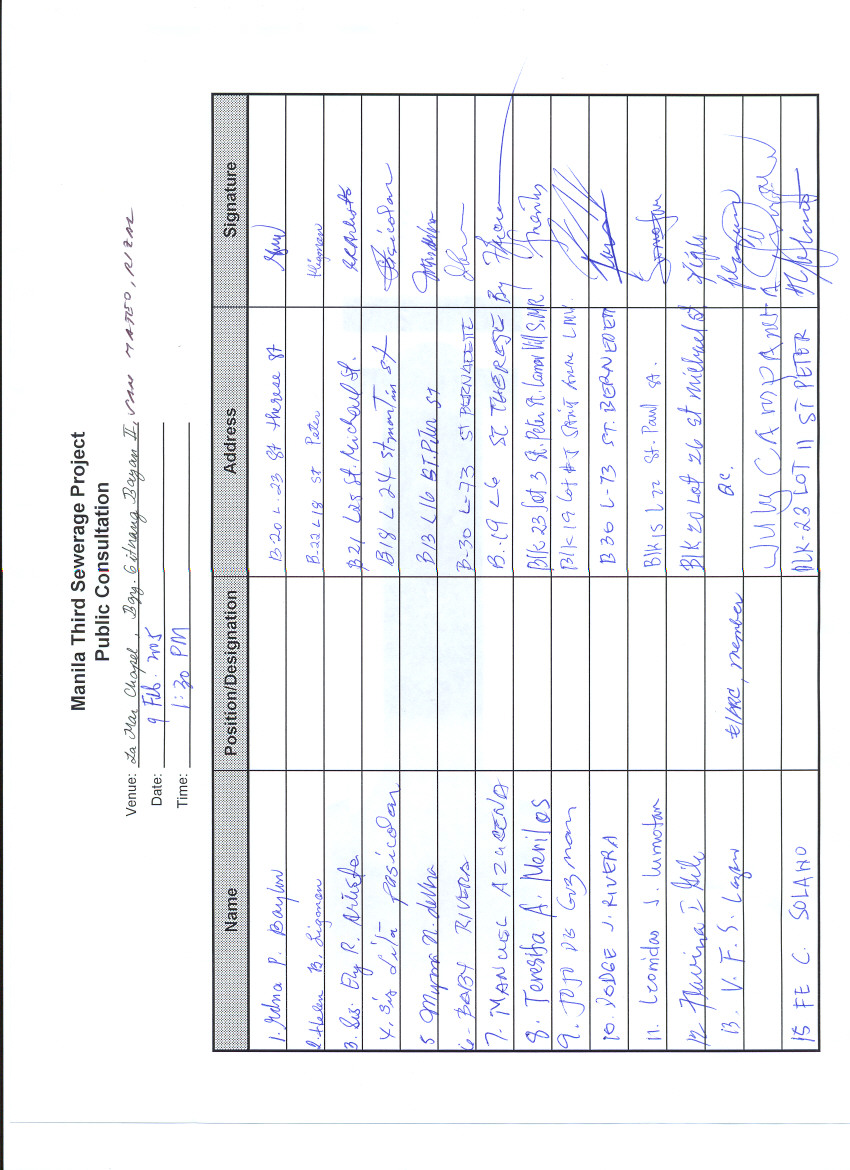 Manila Third Sewerage Project
Public Consultation
Venue: La Mar Chapel, Bgy. Gitnang Bayan II, SAN MATEO, RIZAL
Date: 9 Feb. 2005
Time: 1:30 PM
Name Position/Designation Address Signature
1. Edna P. Baylon B-20 L-23 St Therese St
2. Helen B. Ligman B-22 L18 St Peter Hligman
3. Sis. Ely R. B21 L25 St. Michael St.
4. Sis Lita Pasicolan B18 L24 St martin st Pasicolan
5 Myrna N. B13 L16 ST. Peter ST
6- BABY RIVERA B-30 L-73 ST BERNADETTE
7. MANUEL AZUCENA B.19 L6 ST THERESE
8. Teresita A. Merilos Blk 23 Lot 3 St. Peter St.
9. JOJO DE GUZMAN Blk 19 Lot # Saint Anne
10. DODGE J. RIVERA B 30 L-73 ST.
11. Leonidas J. Lumotan Blk 15 L 22 St. Paul St.
12 Blk 20 Lot 26 St Michael St
13. V. F. S. member Q.C.
JULY CAMPANETA
15 FE C. SOLANO BLK-23 LOT 11 ST PETER